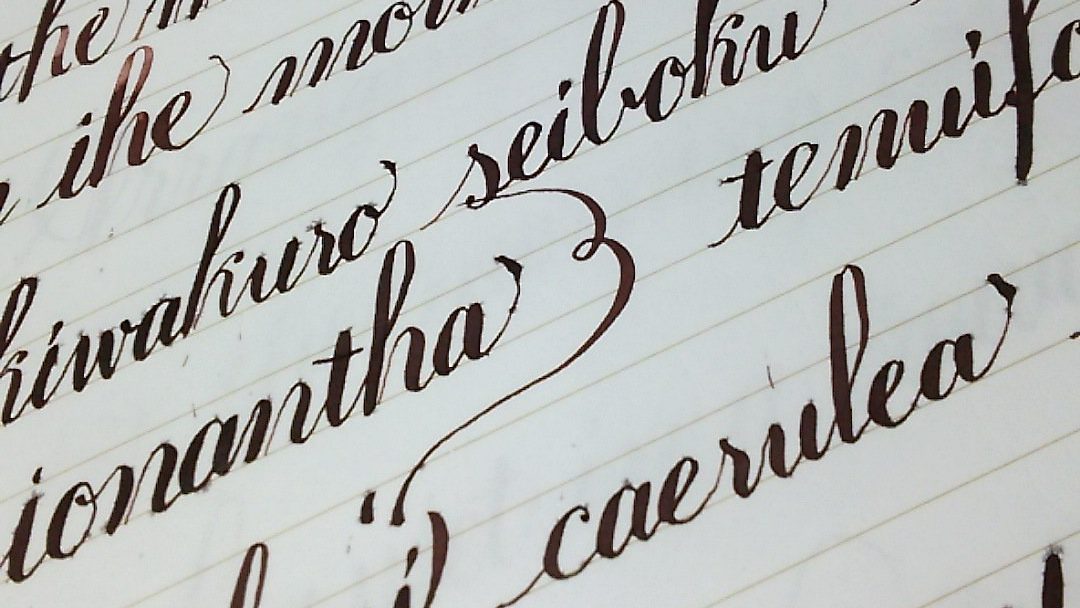 the
ihe
kiwakuro seiboku
ionantha tenuifo
caerulea